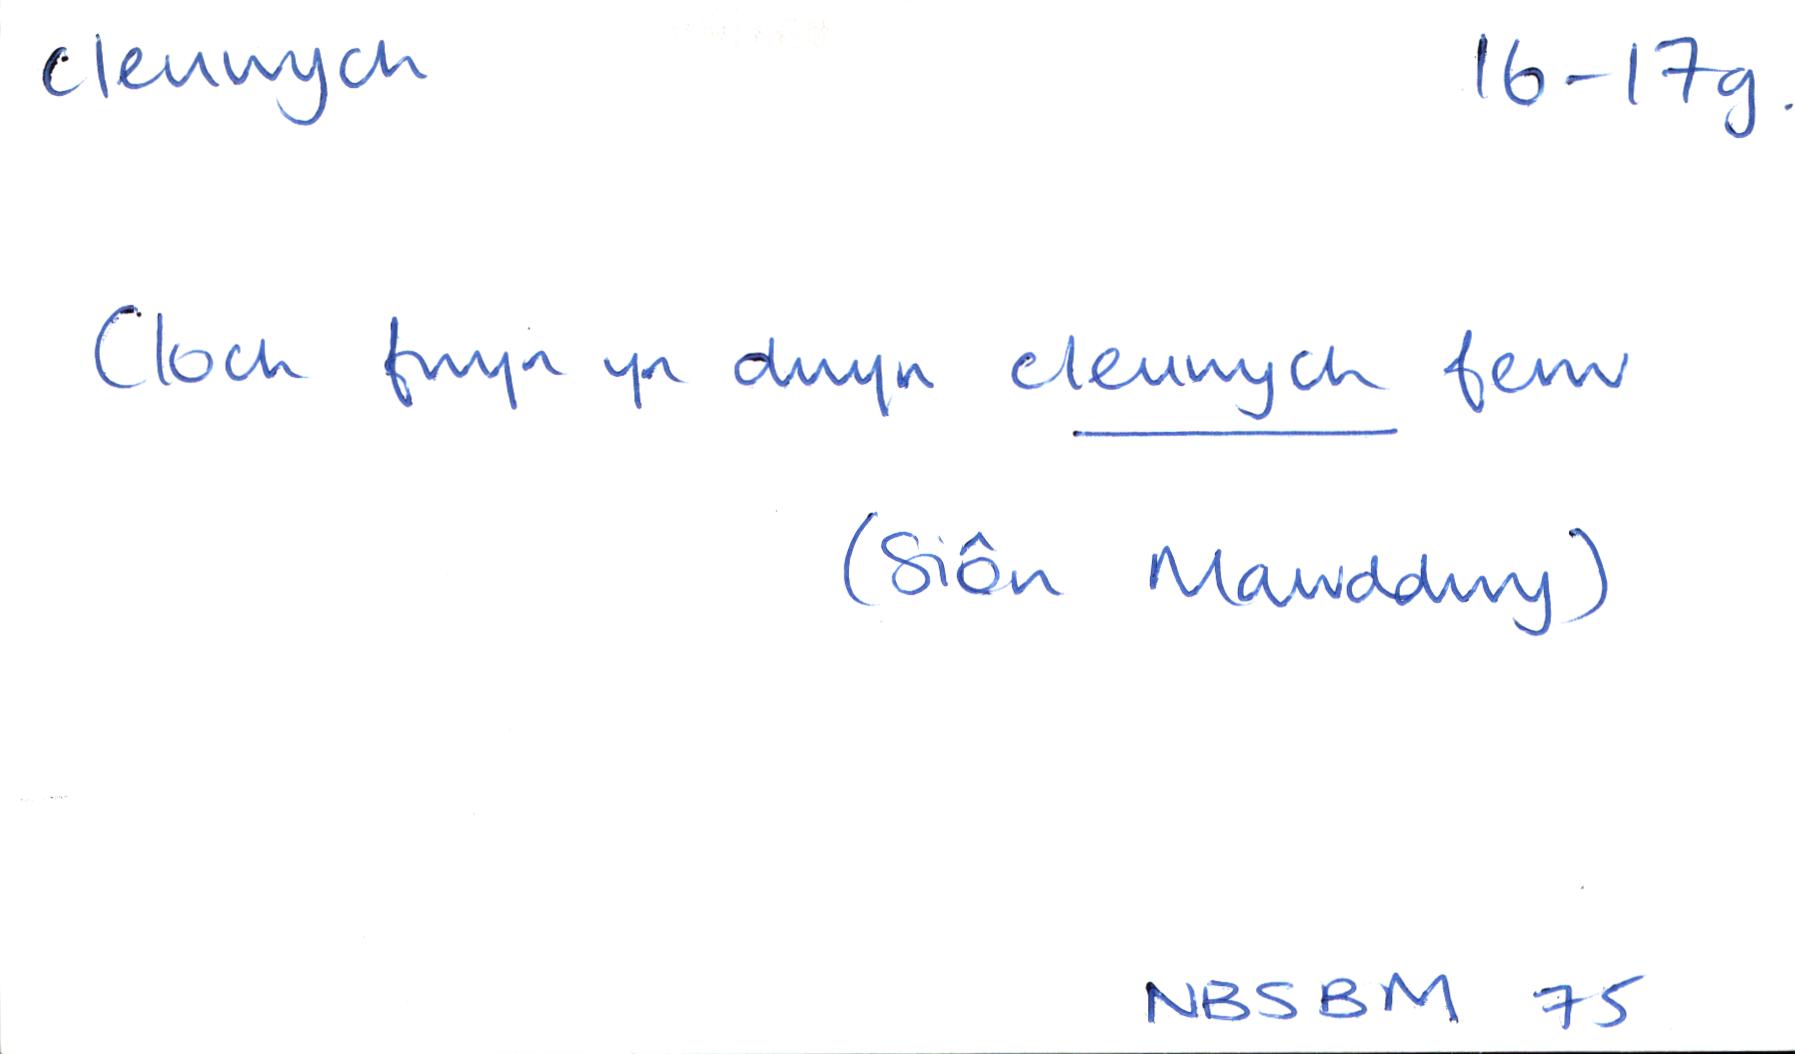 cleuwych 16-17g.
Cloch fwyn yn dwyn cleuwych ferw
(Siôn Mawddwy)
NBSBM 75